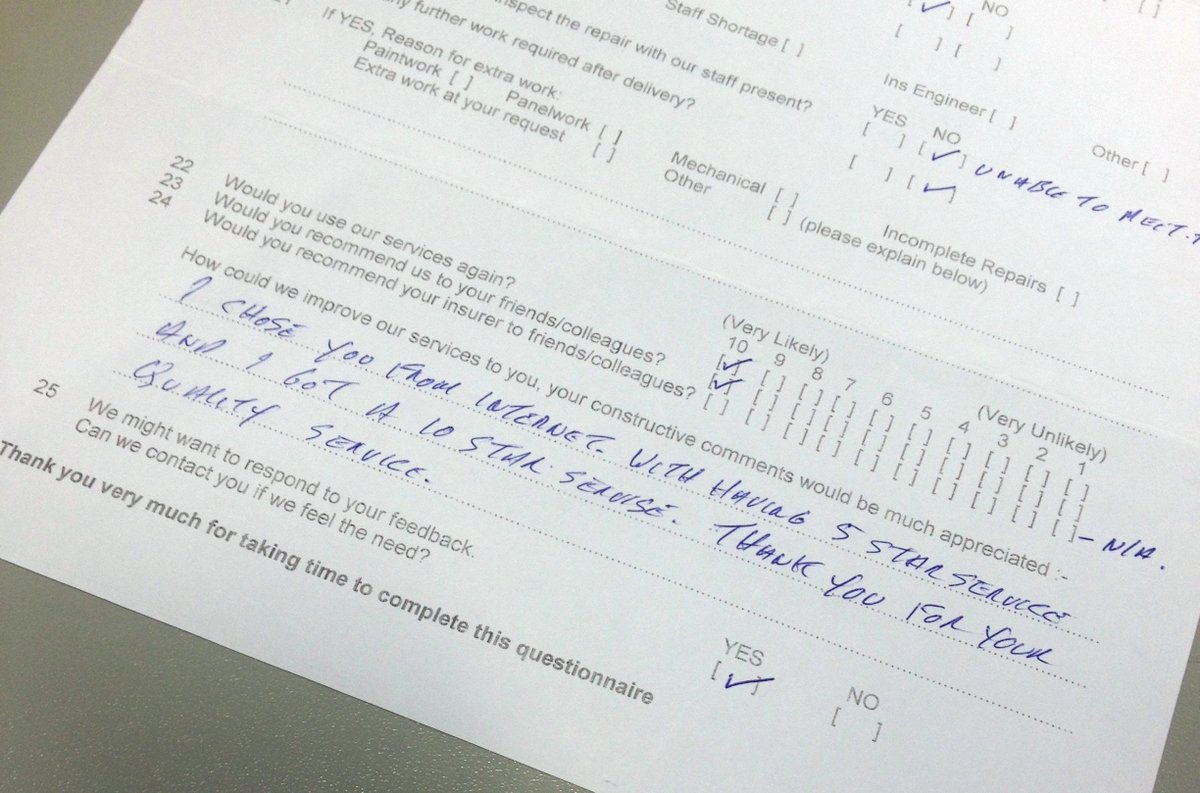 Staff Shortage [ ]
[✓] [ ]
NO
[ ] [ ]
inspect the repair with our staff present?
Ins Engineer [ ]
Other [ ]
further work required after delivery?
YES NO
[ ] [✓] UNABLE TO MEET.
If YES, Reason for extra work:
[ ] [✓]
Paintwork [ ] Panelwork [ ] Mechanical [ ] Incomplete Repairs [ ]
Extra work at your request [ ] Other [ ] (please explain below)
(Very Likely) (Very Unlikely)
10 9 8 7 6 5 4 3 2 1
22 Would you use our services again? [✓] [ ] [ ] [ ] [ ] [ ] [ ] [ ] [ ] [ ]
23 Would you recommend us to your friends/colleagues? [✓] [ ] [ ] [ ] [ ] [ ] [ ] [ ] [ ] [ ]
24 Would you recommend your insurer to friends/colleagues? [ ] [ ] [ ] [ ] [ ] [ ] [ ] [ ] [ ] [ ] - N/A.
How could we improve our services to you, your constructive comments would be much appreciated :-
I CHOSE YOU FROM INTERNET. WITH HAVING 5 STAR SERVICE
AND I GOT A 10 STAR SERVISE. THANK YOU FOR YOUR
QUALITY SERVICE.
25 We might want to respond to your feedback.
YES NO
Can we contact you if we feel the need? [✓] [ ]
Thank you very much for taking time to complete this questionnaire